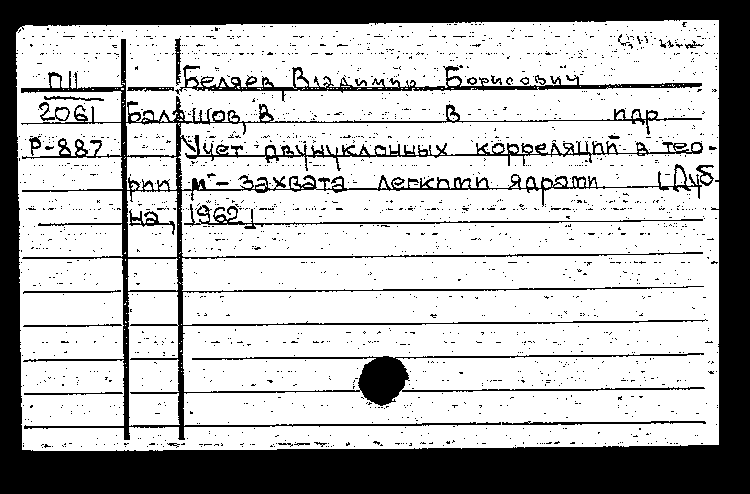 П11 Беляев, Владимир Борисович
2061 Балашов, В В и др.
Р-887 Учет двунуклонных корреляций в тео-
рии μ⁻-захвата легкими ядрами. [Дуб-
на, 1962]